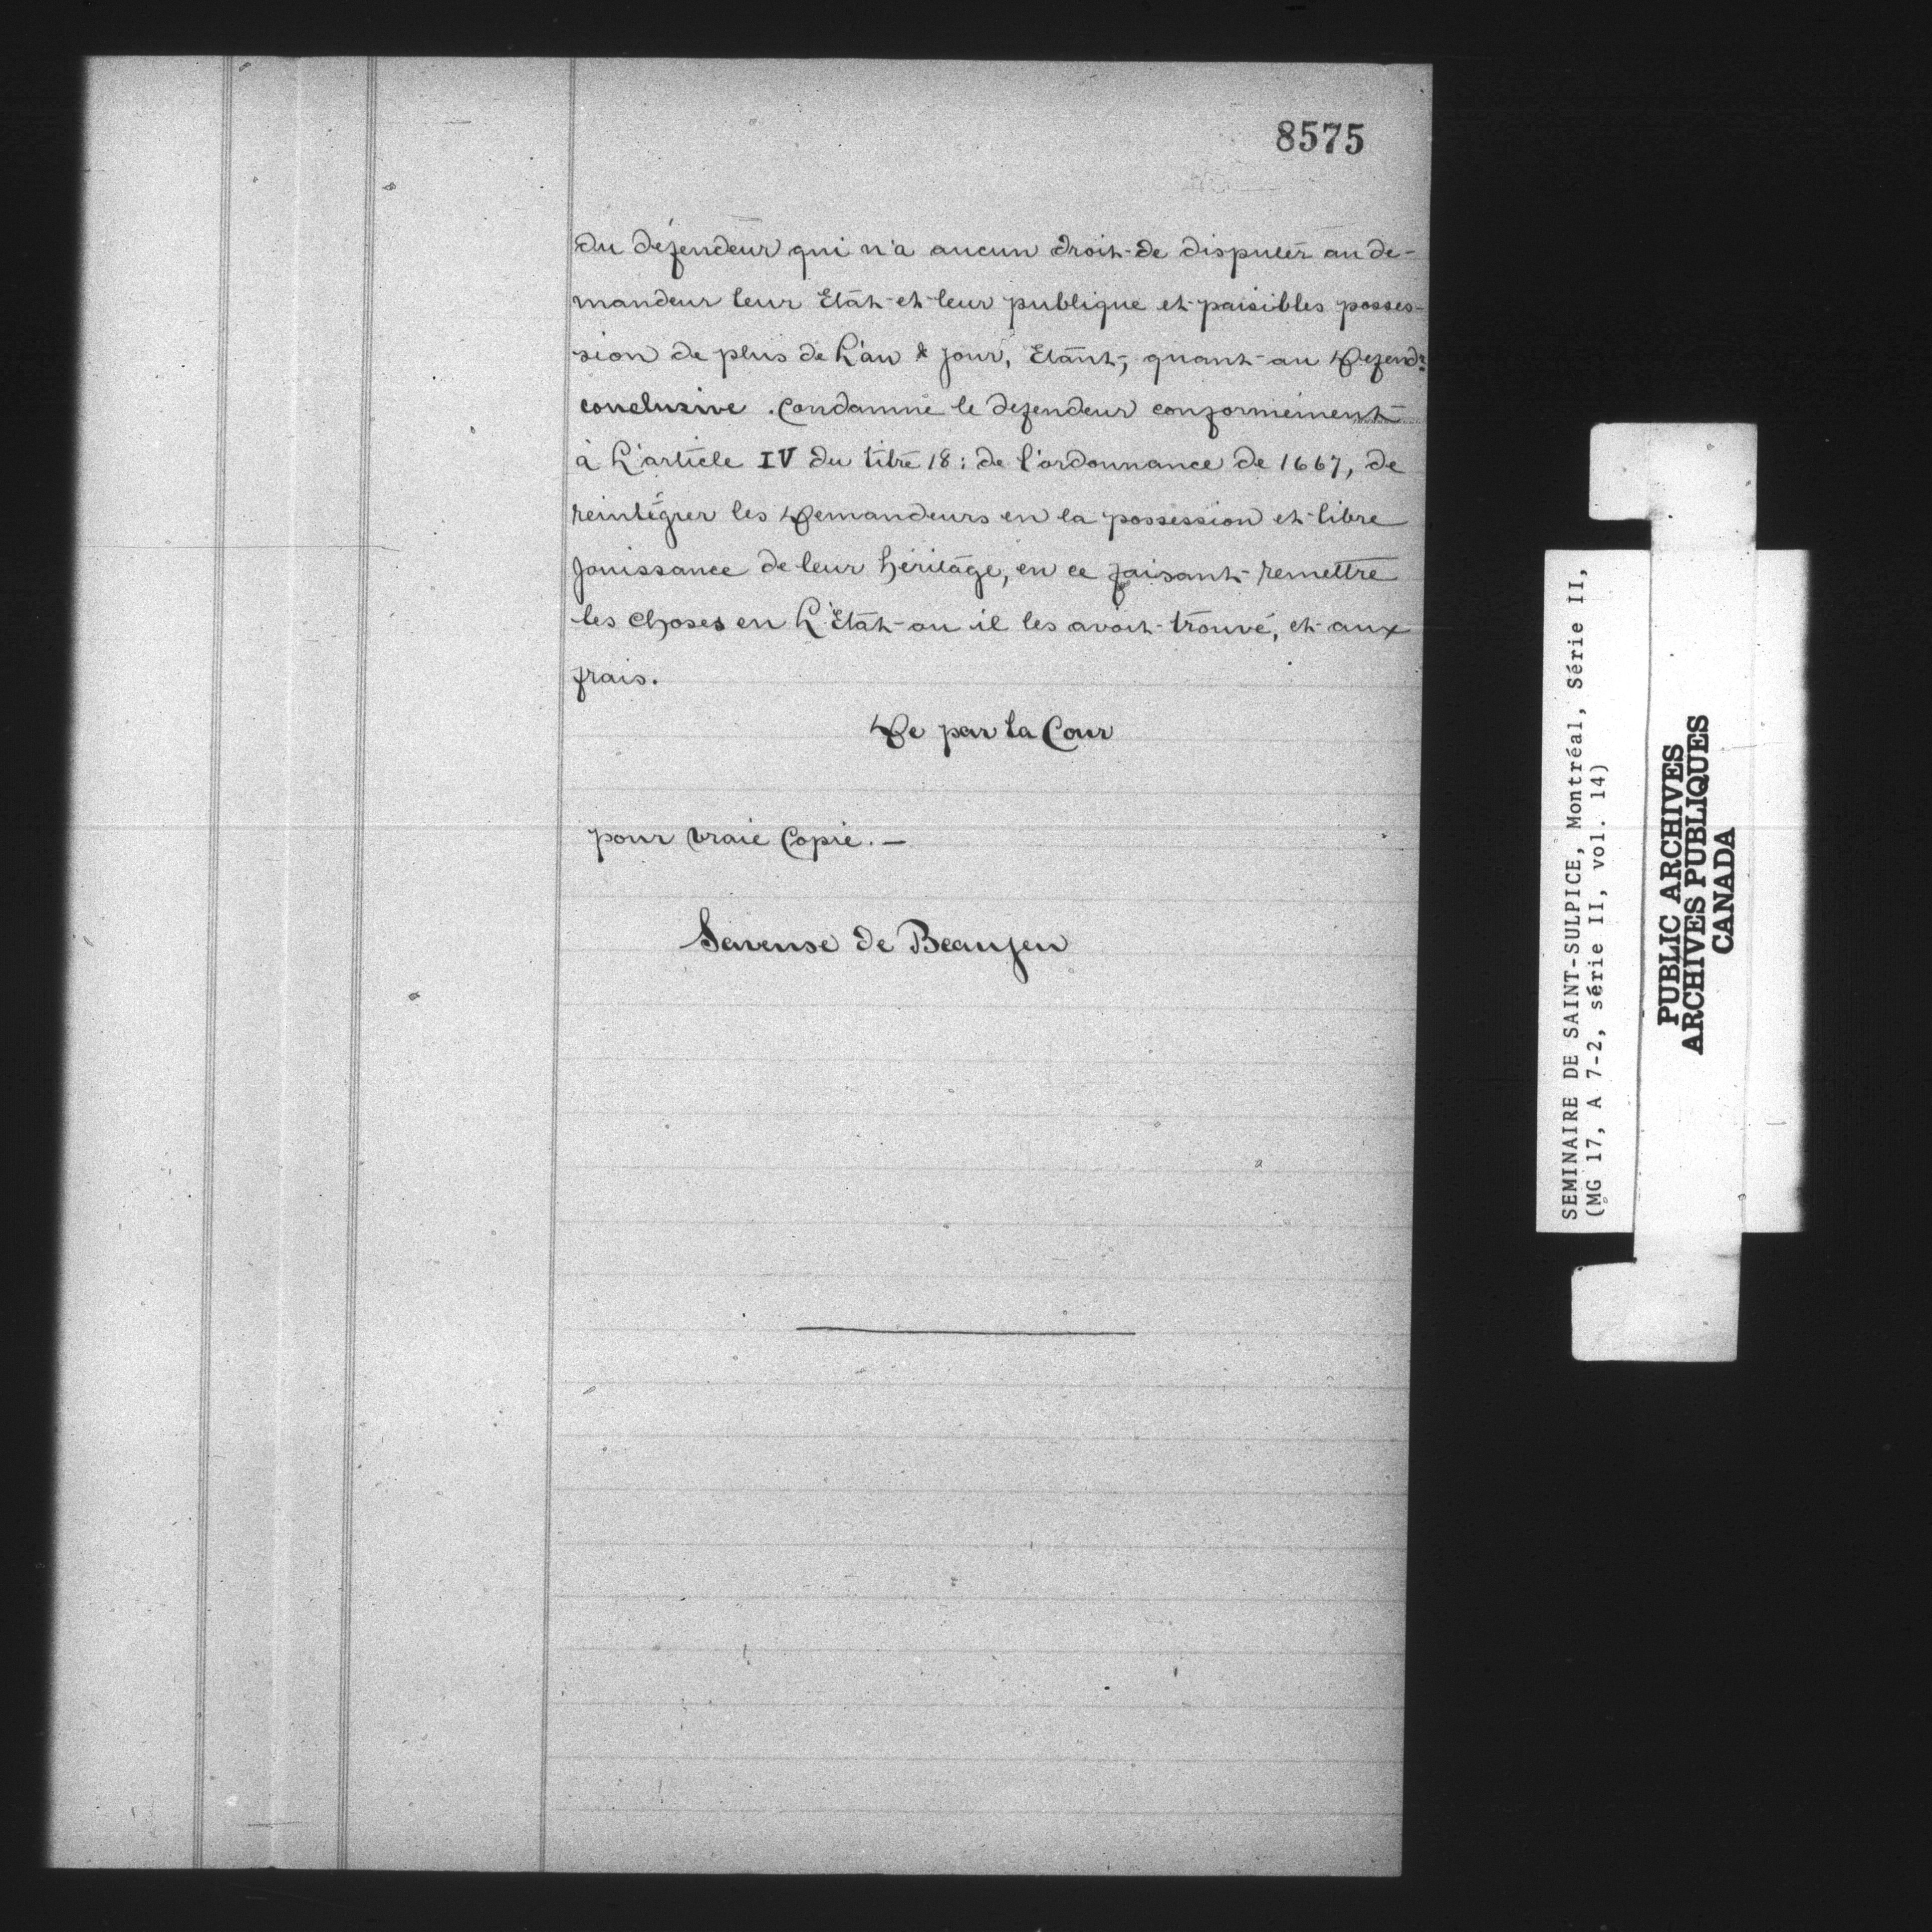 8575
du défendeur qui n'a aucun droit de disputer au de-
mandeur leur Etat et leur publique et paisibles posses-
sion de plus de L'an & jour, Etant, quant au Defendr
conclusive. Condamne le defendeur conformément
à L'article IV du titre 18: de l'ordonnance de 1667, de
reintégrer les Demandeurs en la possession et libre
Jouissance de leur héritage, en ce faisant remettre
les choses en L'Etat ou il les avoit trouvé, et aux
frais.
De par la Cour
pour vraie Copie. —
Saveuse de Beaujeu
SEMINAIRE DE SAINT-SULPICE, Montréal, Série II,
(MG 17, A 7-2, série II, vol. 14)
PUBLIC ARCHIVES
ARCHIVES PUBLIQUES
CANADA